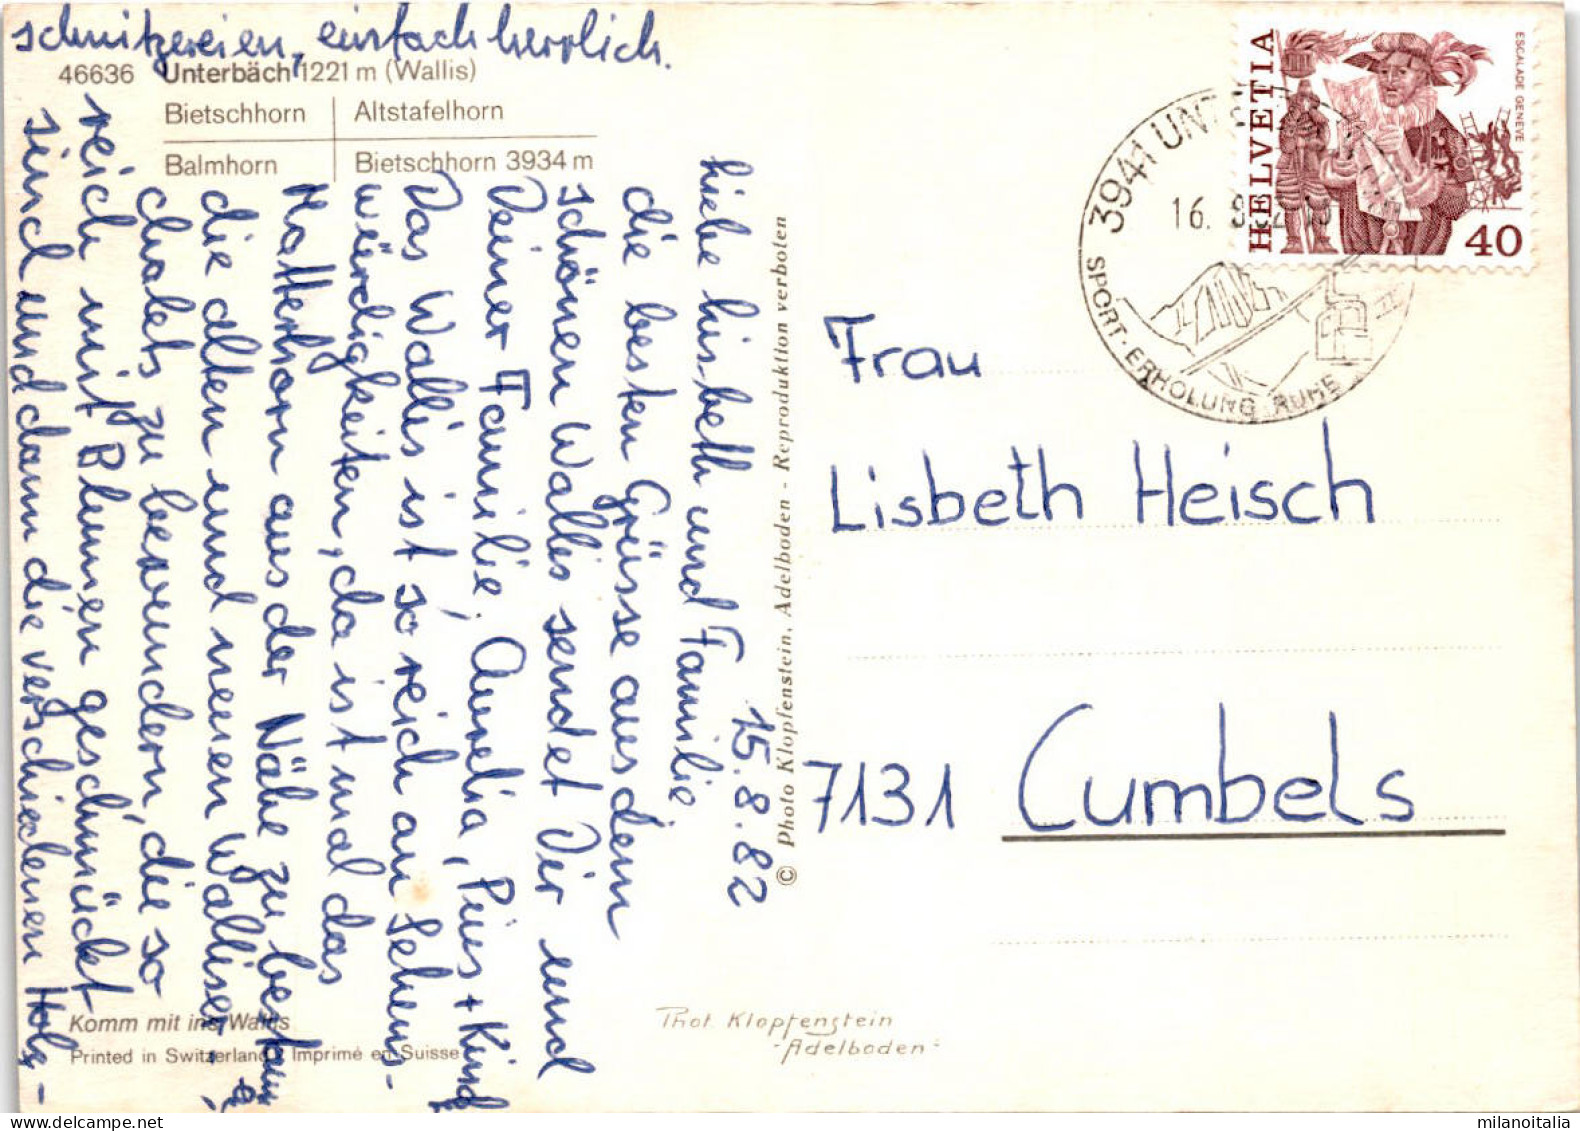 46636 Unterbäch 1221 m (Wallis)
Bietschhorn Altstafelhorn
Balmhorn Bietschhorn 3934 m
15. 8. 82
Liebe Lisbeth und Familie,
die besten Grüsse aus dem
schönen Wallis sendet Dir und
Deiner Familie, Aurelia, Pius + Kind
Das Wallis ist so reich an Sehens-
würdigkeiten, da ist mal das
Matterhorn aus der Nähe zu bestaunen
die alten und neuen Walliser-
chalets zu bewundern, die so
reich mit Blumen geschmückt
sind und dann die verschiedenen Holz-
schnitzereien, einfach herrlich.
Komm mit ins Wallis
Printed in Switzerland Imprimé en Suisse
© Photo Klopfenstein, Adelboden - Reproduktion verboten
Phot. Klopfenstein
-Adelboden-
HELVETIA
ESCALADE GENÈVE
40
3941 UNT
16. 8.
SPORT · ERHOLUNG RUHE
Frau
Lisbeth Heisch
7131 Cumbels
milanoitalia